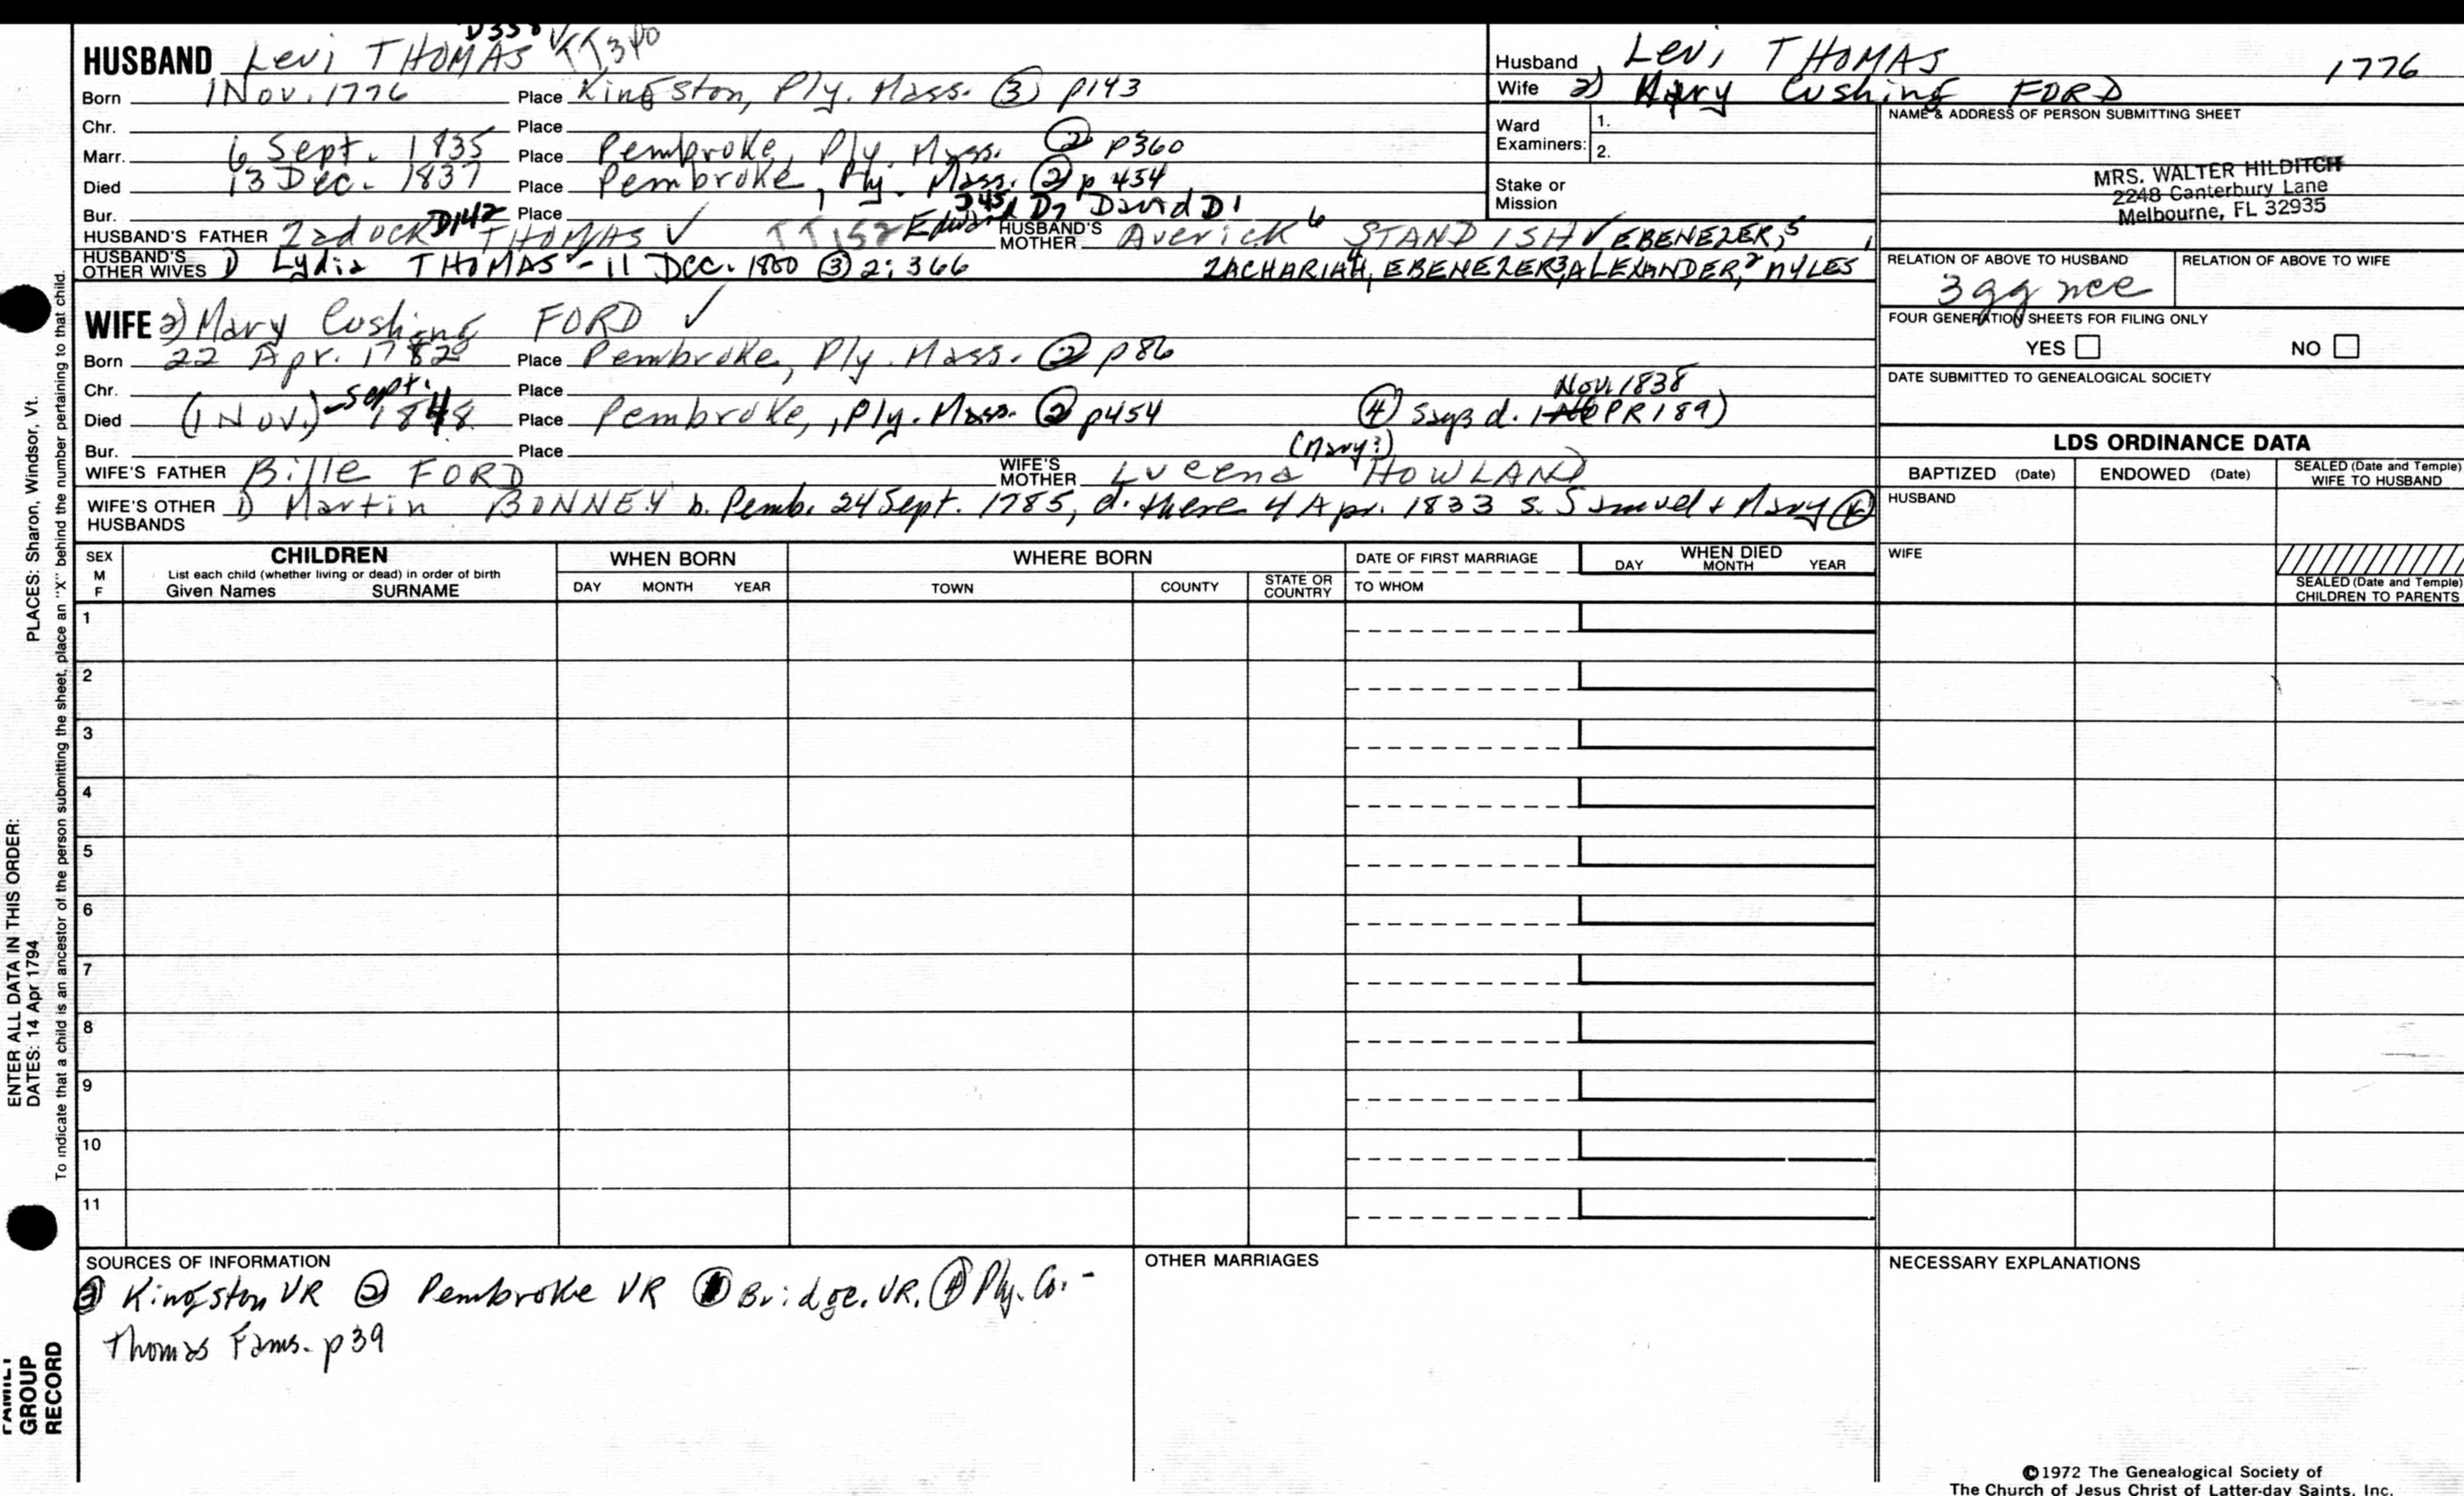 HUSBAND Levi THOMAS D358 TT340
Born 1 Nov. 1776 Place Kingston, Ply. Mass. (3) p143
Chr. Place
Marr. 6 Sept. 1835 Place Pembroke, Ply. Mass. (2) p360
Died 13 Dec. 1837 Place Pembroke, Ply. Mass. (2) p 454
Bur. Place
HUSBAND'S FATHER Zadock D142 THOMAS ✓ TT152 HUSBAND'S MOTHER Averick 6 STANDISH ✓ EBENEZER,5
David D1
ZACHARIAH,4 EBENEZER,3 ALEXANDER,2 MYLES 1
HUSBAND'S OTHER WIVES 1) Lydia THOMAS - 11 Dec. 1800 (3) 2:366
WIFE 2) Mary Cushing FORD ✓
Born 22 Apr. 1782 Place Pembroke, Ply. Mass. (2) p86
Chr. Place
Died (1 Nov.) - Sept. 1848 Place Pembroke, Ply. Mass. (2) p454 (4) says d. Nov. 1838 PR189)
Bur. Place
WIFE'S FATHER Bille FORD WIFE'S MOTHER (Mary?) Lucena HOWLAND
WIFE'S OTHER HUSBANDS 1) Martin BONNEY b. Pemb. 24 Sept. 1785, d. there 4 Apr. 1833 s. Samuel + Mary
Husband Levi THOMAS 1776
Wife 2) Mary Cushing FORD
Ward Examiners: 1.
2.
Stake or Mission
NAME & ADDRESS OF PERSON SUBMITTING SHEET
MRS. WALTER HILDITCH
2248 Canterbury Lane
Melbourne, FL 32935
RELATION OF ABOVE TO HUSBAND RELATION OF ABOVE TO WIFE
3gg nce
FOUR GENERATION SHEETS FOR FILING ONLY
YES NO
DATE SUBMITTED TO GENEALOGICAL SOCIETY
LDS ORDINANCE DATA
BAPTIZED (Date) ENDOWED (Date) SEALED (Date and Temple) WIFE TO HUSBAND
HUSBAND
WIFE
SEALED (Date and Temple) CHILDREN TO PARENTS
SEX M F
CHILDREN
List each child (whether living or dead) in order of birth
Given Names SURNAME
WHEN BORN
DAY MONTH YEAR
WHERE BORN
TOWN COUNTY STATE OR COUNTRY
DATE OF FIRST MARRIAGE
TO WHOM
WHEN DIED
DAY MONTH YEAR
1
2
3
4
5
6
7
8
9
10
11
SOURCES OF INFORMATION
(3) Kingston VR (2) Pembroke VR (1) Bridge. VR. (4) Ply. Co. -
Thomas Fams. p39
OTHER MARRIAGES
NECESSARY EXPLANATIONS
ENTER ALL DATA IN THIS ORDER:
DATES: 14 Apr 1794
PLACES: Sharon, Windsor, Vt.
To indicate that a child is an ancestor of the person submitting the sheet, place an "X" behind the number pertaining to that child.
FAMILY
GROUP
RECORD
©1972 The Genealogical Society of
The Church of Jesus Christ of Latter-day Saints, Inc.